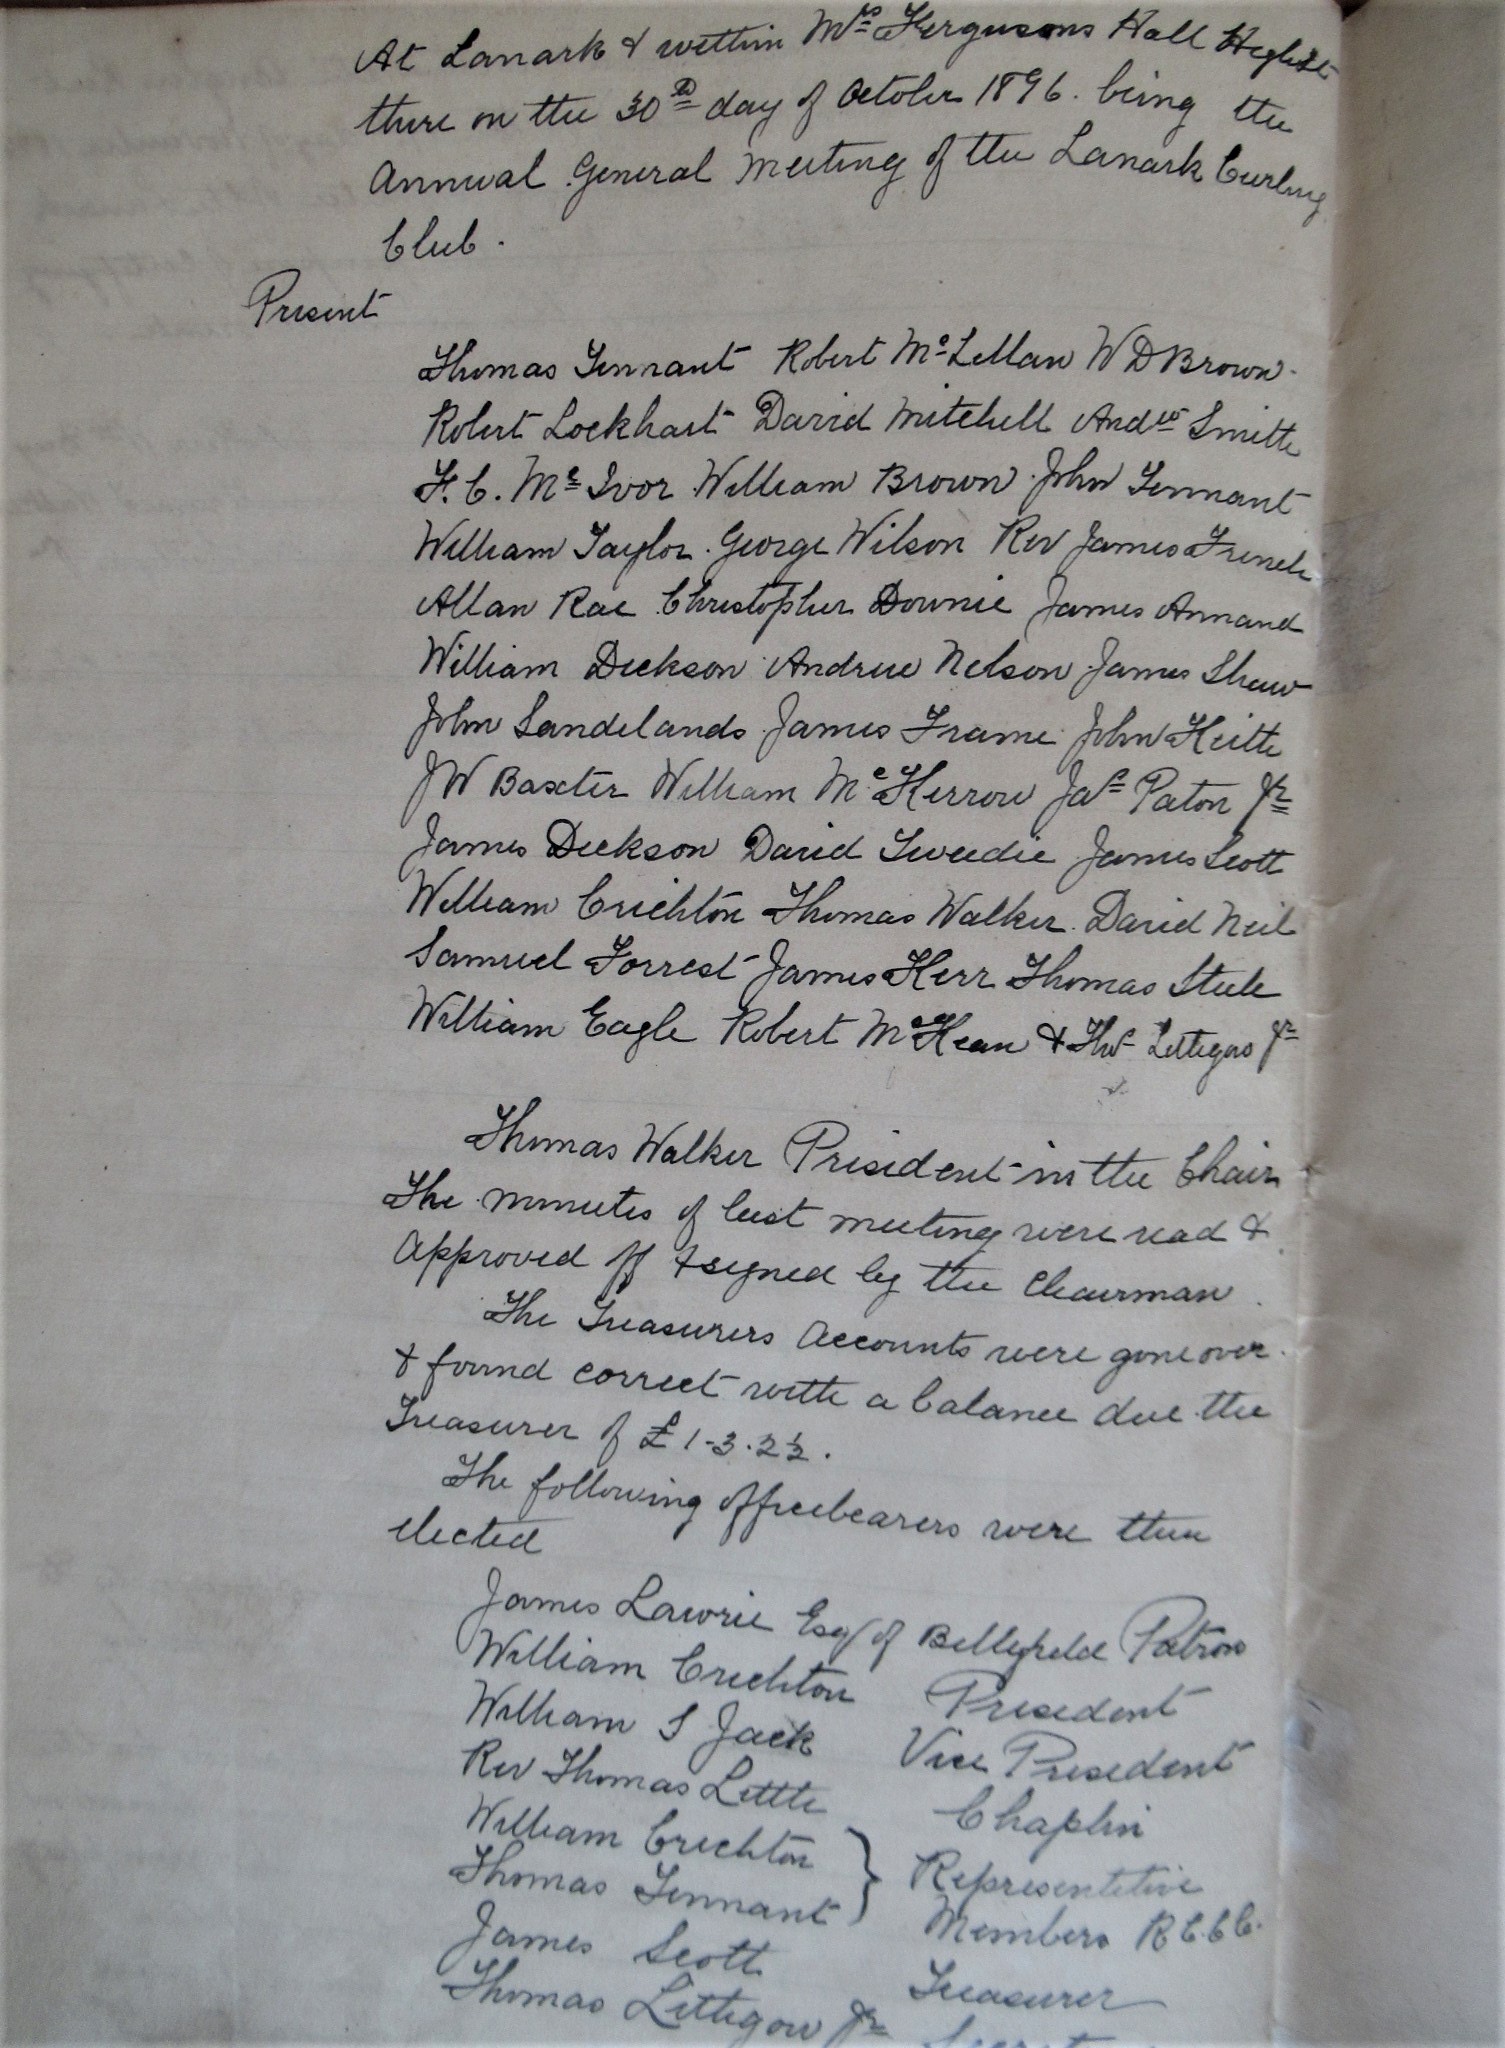 At Lanark & within Mrs Fergusons Hall High St
there on the 30th day of October 1896. being the
Annual General Meeting of the Lanark Curling
Club.
Present
Thomas Tennant Robert Mc Lellan W D Brown.
Robert Lockhart David Mitchell Andw Smith
F. C. Mc Ivor William Brown John Tennant
William Taylor. George Wilson Rev James French
Allan Rae Christopher Downie James Annand
William Dickson Andrew Nelson James Shaw
John Sandelands James Frame John Keith
J W Baxter William Mc Kerrow Jas Paton Jr
James Dickson David Tweedie James Scott
William Crichton Thomas Walker. David Neil
Samuel Forrest James Kerr Thomas Steele
William Eagle Robert Mc Kean & Thos Lithgow Jr
Thomas Walker President in the Chair
The minutes of last meeting were read &
Approved of & signed by the Chairman.
The Treasurers Accounts were gone over
& found correct with a balance due the
Treasurer of £1-3.2½.
The following officebearers were then
elected
James Lawrie Esq of Bellefield Patron
William Crichton President
William S Jack Vice President
Rev Thomas Little Chaplin
William Crichton } Representitive
Thomas Tennant Members R C.C.C.
James Scott Treasurer
Thomas Lithgow Jr